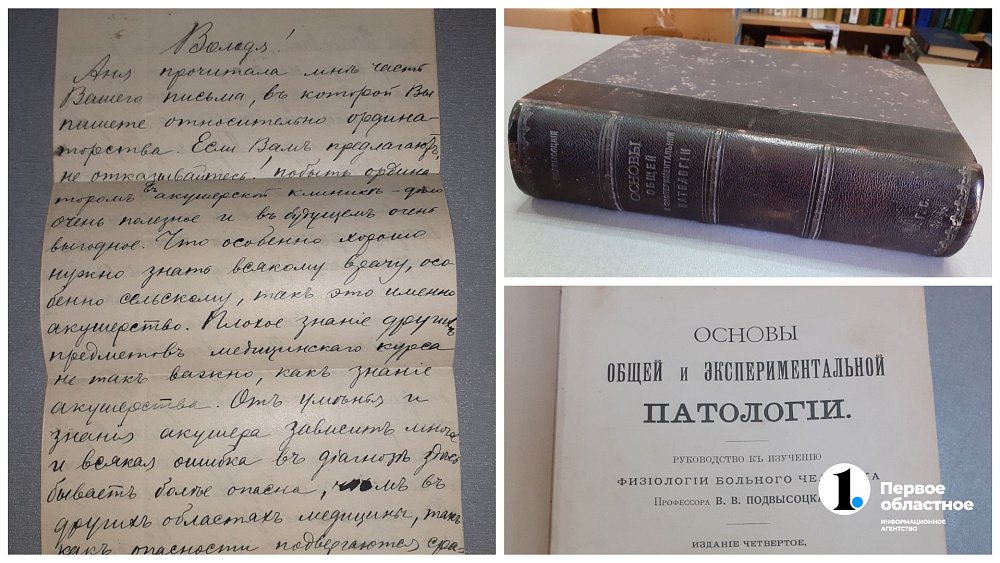 Володя!
Аня прочитала мнѣ часть
Вашего письма, въ которой Вы
пишете относительно ордина-
торства. Если Вамъ предлагаютъ,
не отказывайтесь: побыть ордина-
торомъ въ акушерской клиникѣ – дѣло
очень полезное и въ будущемъ очень
выгодное. Что особенно хорошо
нужно знать всякому врачу, осо-
бенно сельскому, такъ это именно
акушерство. Плохое знаніе другихъ
предметовъ медицинскаго курса
не такъ важно, какъ знаніе
акушерства. Отъ умѣнья и
знанія акушера зависитъ много
и всякая ошибка въ діагнозѣ здѣсь
бываетъ болѣе опасна, чѣмъ въ
другихъ областяхъ медицины, такъ
какъ опасности подвергаются сра-
ПОДВЫСОЦКІЙ
ОСНОВЫ
ОБЩЕЙ
И ЭКСПЕРИМЕНТАЛЬНОЙ
ПАТОЛОГІИ
Г. С.
ОСНОВЫ
ОБЩЕЙ И ЭКСПЕРИМЕНТАЛЬНОЙ
ПАТОЛОГІИ.
РУКОВОДСТВО КЪ ИЗУЧЕНІЮ
ФИЗІОЛОГІИ БОЛЬНОГО
ПРОФЕССОРА В. В. ПОДВЫСОЦК
ИЗДАНІЕ ЧЕТВЕРТОЕ,
1.
Первое
областное
ИНФОРМАЦИОННОЕ
АГЕНТСТВО